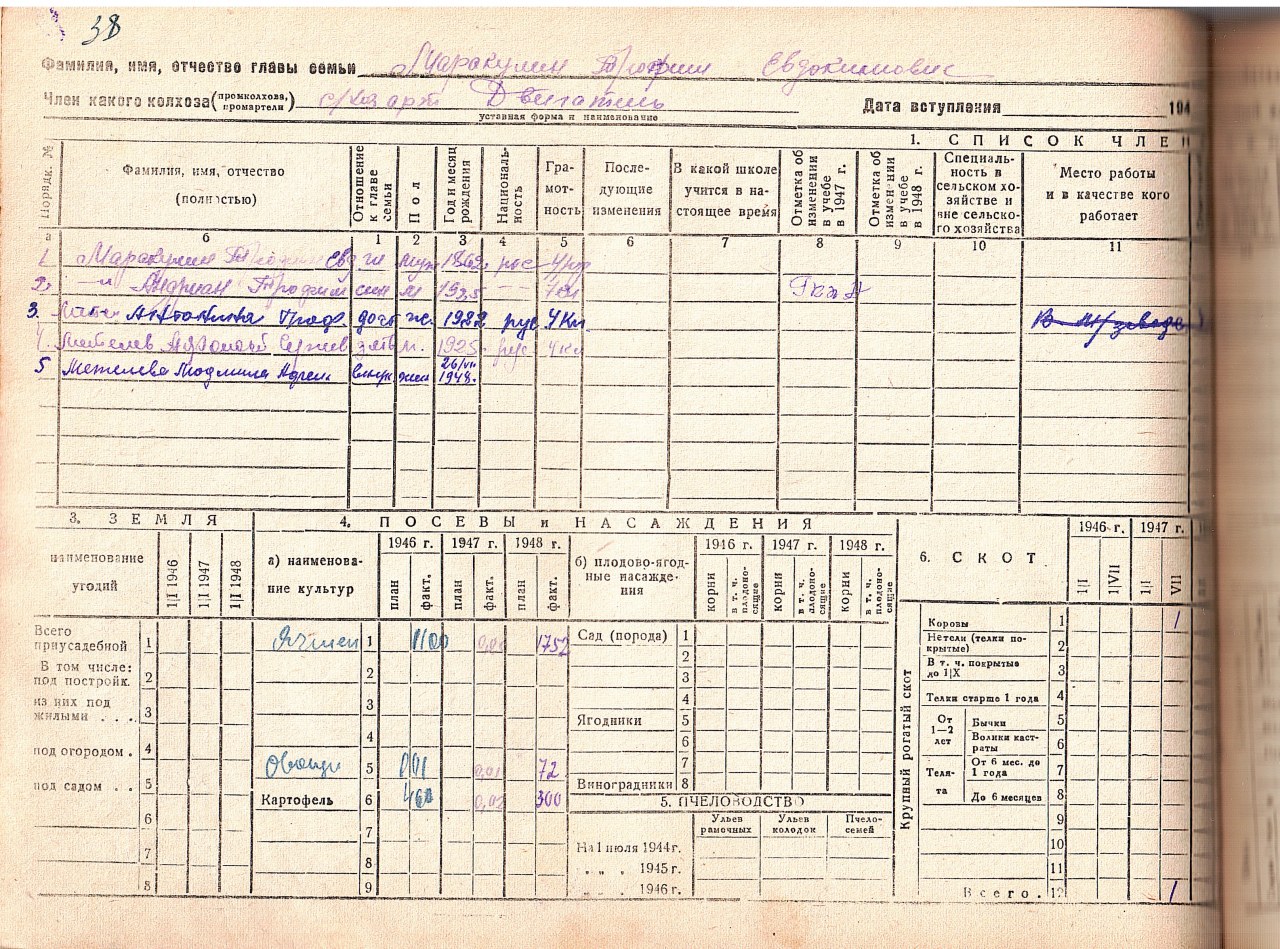 38
Фамилия, имя, отчество главы семьи Маракулин Трофим Евдокимович
Член какого колхоза (промколхоза, промартели) с/хоз арт Двигатель Дата вступления 194
уставная форма и наименование
1. СПИСОК ЧЛЕН
Порядк. № Фамилия, имя, отчество (полностью) Отношение к главе семьи Пол Год и месяц рождения Националь-ность Гра-мот-ность После-дующие изменения В какой школе учится в на-стоящее время Отметка об изменении в учебе в 1947 г. Отметка об изменении в учебе в 1948 г. Специаль-ность в сельском хо-зяйстве и вне сельско-го хозяйства Место работы и в качестве кого работает
а б 1 2 3 4 5 6 7 8 9 10 11
1. Маракулин Трофим Евд гл муж 1862 рус
2. — и Андриан Трофим сын м 1925 — —
3. Антонина Троф. дочь ж. 1922 рус 4 кл
4. Метелев Сергеев зять м. 1925 рус 4 кл
5 Метелева Людмила внук жен 26/VI 1948.
3. ЗЕМЛЯ
наименование угодий 1|I 1946 1|I 1947 1|I 1948
Всего приусадебной 1
В том числе: под постройк. 2
из них под жилыми . . . 3
под огородом . 4
под садом . . 5
6
7
8
4. ПОСЕВЫ и НАСАЖДЕНИЯ
а) наименова-ние культур 1946 г. 1947 г. 1948 г.
план факт. план факт. план факт.
Ячмен 1 1100 1752
2
3
4
Овощи 5 001 0,01 72
Картофель 6 460 0,03 300
7
8
9
б) плодово-ягод-ные насажде-ния 1946 г. 1947 г. 1948 г.
корни в т. ч. плодоно-сящие корни в т. ч. плодоно-сящие корни в т. ч. плодоно-сящие
Сад (порода) 1
2
3
4
Ягодники 5
6
7
Виноградники 8
5. ПЧЕЛОВОДСТВО
Ульев рамочных Ульев колодок Пчело-семей
На 1 июля 1944 г.
„ „ 1945 г.
„ „ 1946 г.
6. СКОТ 1946 г. 1947 г.
1|I 1|VII 1|I VII
Крупный рогатый скот
Коровы 1 1
Нетели (телки по-крытые) 2
В т. ч. покрытые до 1|X 3
Телки старше 1 года 4
От 1—2 лет Бычки 5
Волики каст-раты 6
Теля-та От 6 мес. до 1 года 7
До 6 месяцев 8
9
10
11
Всего . 12 1